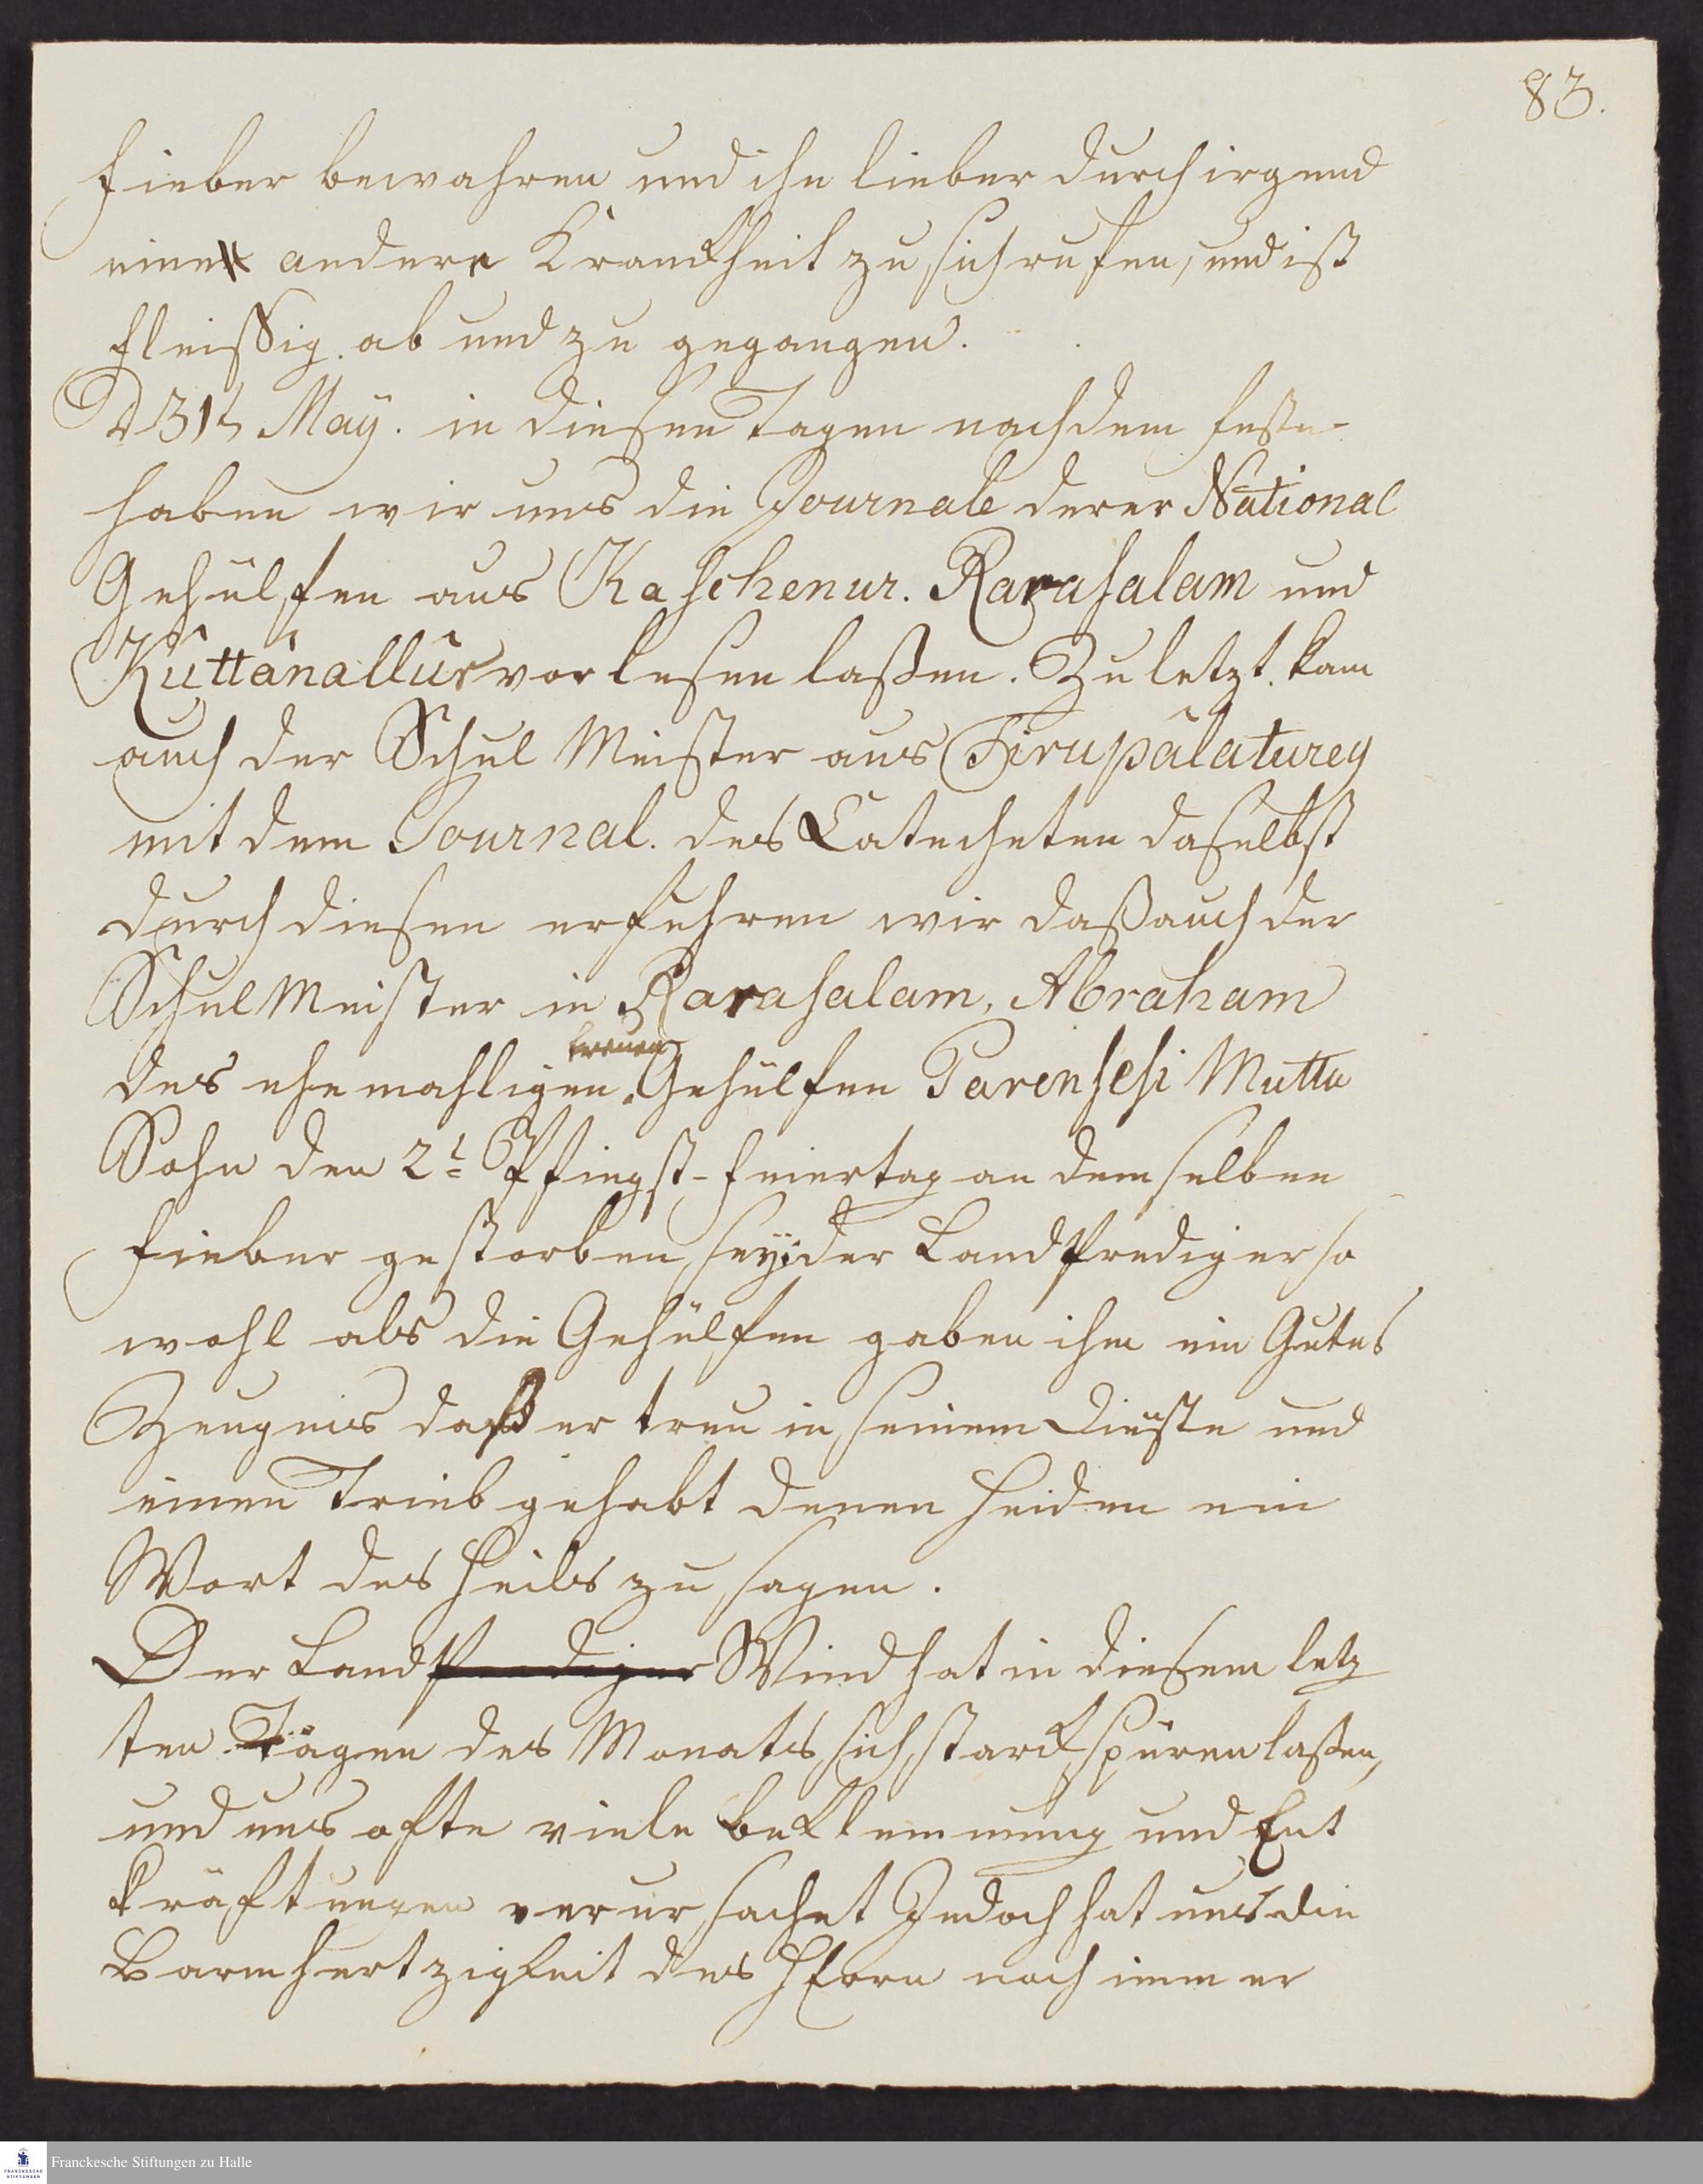 83.
Fieber bewahren und ihn lieber durch irgend
eine andere Kranckheit zu sich rufen, und ist
fleissig ab und zu gegangen.
D 31t May. in diesen Tagen nach dem Feste
haben wir uns die Journale derer National
Gehülfen aus Kaschenur. Rarasalam und
Kuttânallûr vorlesen laßen. Zuletzt kam
auch der Schul Meister aus Tirupâlaturey
mit dem Journal. des Catecheten daselbst
durch diesen erfuhren wir daß auch der
SchulMeister in Rarasalam, Abraham
treuen
des ehemahligen Gehülfen Parensesi Muttu
Sohn den 2t Pfingst-feiertag an demselben
Fieber gestorben sey; der Land Prediger so
wohl als die Gehülfen gaben ihm ein Gutes
Zeugnis daß er treu in seinem Dienste und
einen Trieb gehabt denen Heiden ein
Wort des Heils zu sagen.
Der Land Prediger Wind hat in diesem letz
ten Tägen des Monats sich starck spüren laßen,
und uns ofte viele beklemmung und Ent
kräftungen verursachet Jedoch hat uns die
Barmhertzigkeit des HErrn noch immer
Franckesche Stiftungen zu Halle
FRANCKESCHE
STIFTUNGEN